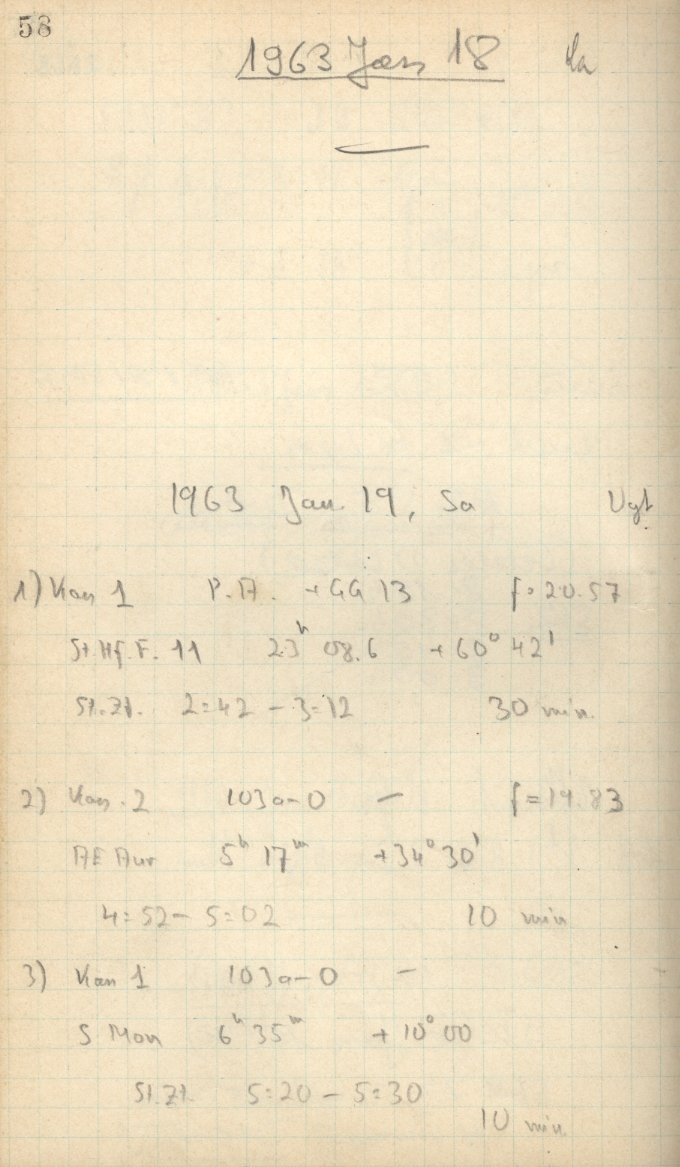 58
1963 Jan 18 La
1963 Jan. 19, Sa Vgt.
1) Kas 1 P.A. + GG 13 f = 20.57
St. Hf. F. 11 23h 08.6 +60° 42'
St. Zt. 2:42 - 3:12 30 min.
2) Kas. 2 103a-O - f = 19.83
AE Aur 5h 17m +34° 30'
4:52 - 5:02 10 min
3) Kas 1 103a-O -
S Mon 6h 35m + 10° 00
St. Zt. 5:20 - 5:30
10 min.